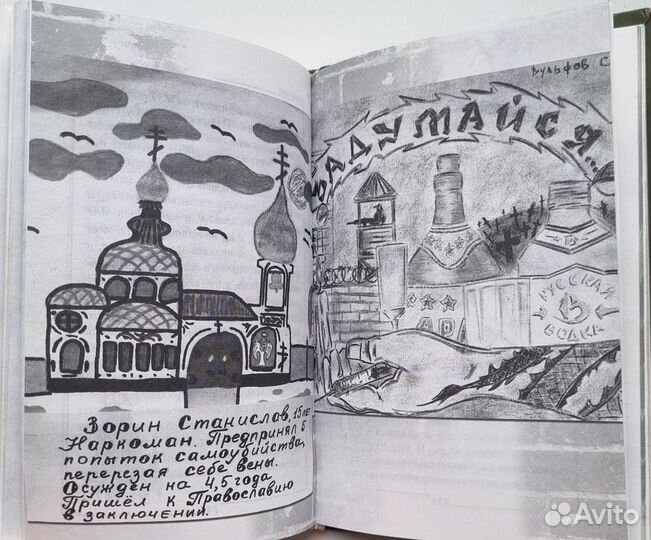 Зорин Станислав, 15 лет
Наркоман. Предпринял 5
попыток самоубийства,
перерезая себе вены.
Осуждён на 4,5 года
Пришёл к Православию
в заключении.
Вульфов С.
ЗАДУМАЙСЯ...
РУССКАЯ
ВОДКА
Avito